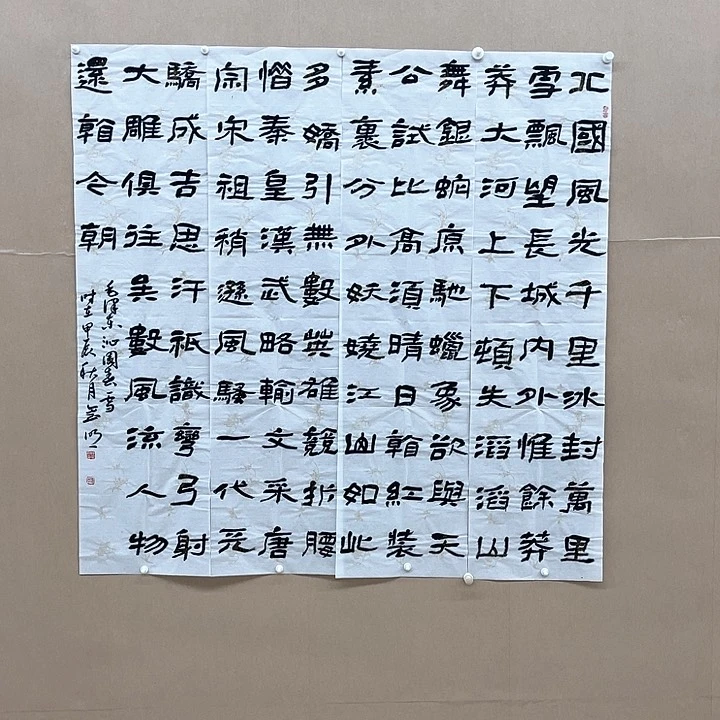 北國風光千里冰封萬里
雪飄望長城內外惟餘莽
莽大河上下頓失滔滔山
舞銀蛇原馳蠟象欲與天
公試比高須晴日看紅裝
素裹分外妖嬈江山如此
多嬌引無數英雄競折腰
惜秦皇漢武略輸文采唐
宗宋祖稍遜風騷一代天
驕成吉思汗祇識彎弓射
大雕俱往矣數風流人物
還看今朝
毛澤东沁園春雪
时在甲辰秋月